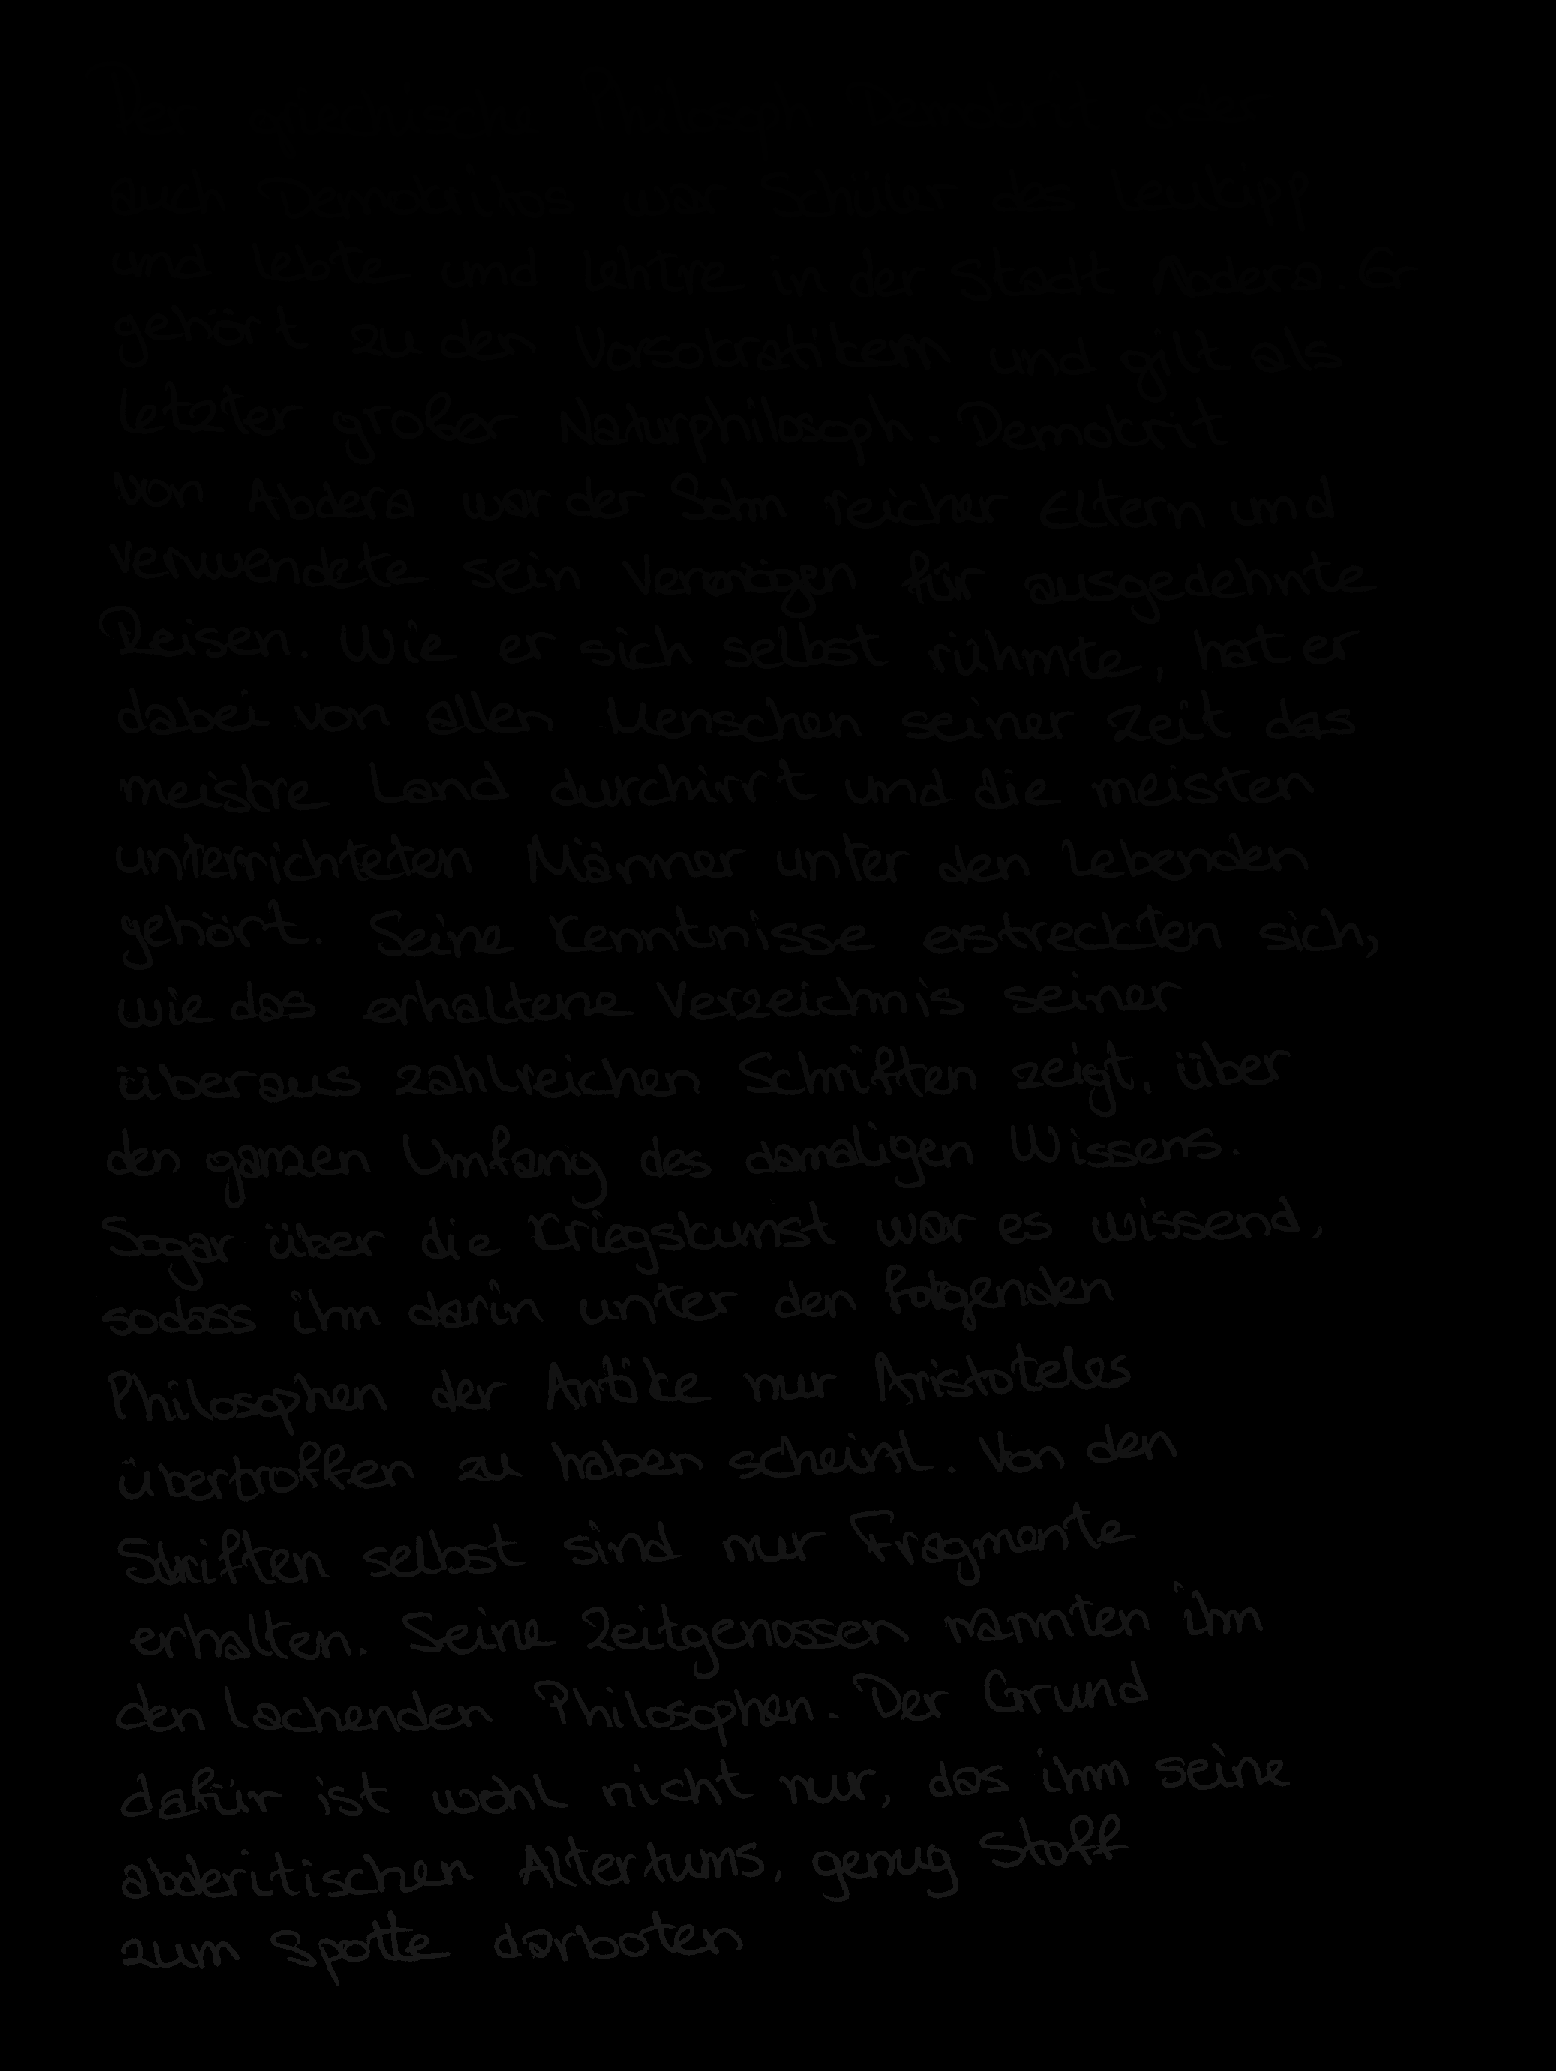 Der griechische Philosoph Demokrit oder
auch Demokritos war Schüler des Leukipp
und lebte und lehrte in der Stadt Abdera. Er
gehört zu den Vorsokratikern und gilt als
letzter großer Naturphilosoph. Demokrit
von Abdera war der Sohn reicher Eltern und
verwendete sein Vermögen für ausgedehnte
Reisen. Wie er sich selbst rühmte, hat er
dabei von allen Menschen seiner Zeit das
meistre Land durchirrt und die meisten
unterrichteten Männer unter den Lebenden
gehört. Seine Kenntnisse erstreckten sich,
wie das erhaltene Verzeichnis seiner
überaus zahlreichen Schriften zeigt, über
den ganzen Umfang des damaligen Wissens.
Sogar über die Kriegskunst war es wissend,
sodass ihm darin unter den folgenden
Philosophen der Antike nur Aristoteles
übertroffen zu haben scheint. Von den
Schriften selbst sind nur Fragmente
erhalten. Seine Zeitgenossen nannten ihn
den lachenden Philosophen. Der Grund
dafür ist wohl nicht nur, das ihm seine
abderitischen Altertums, genug Stoff
zum Spotte darboten